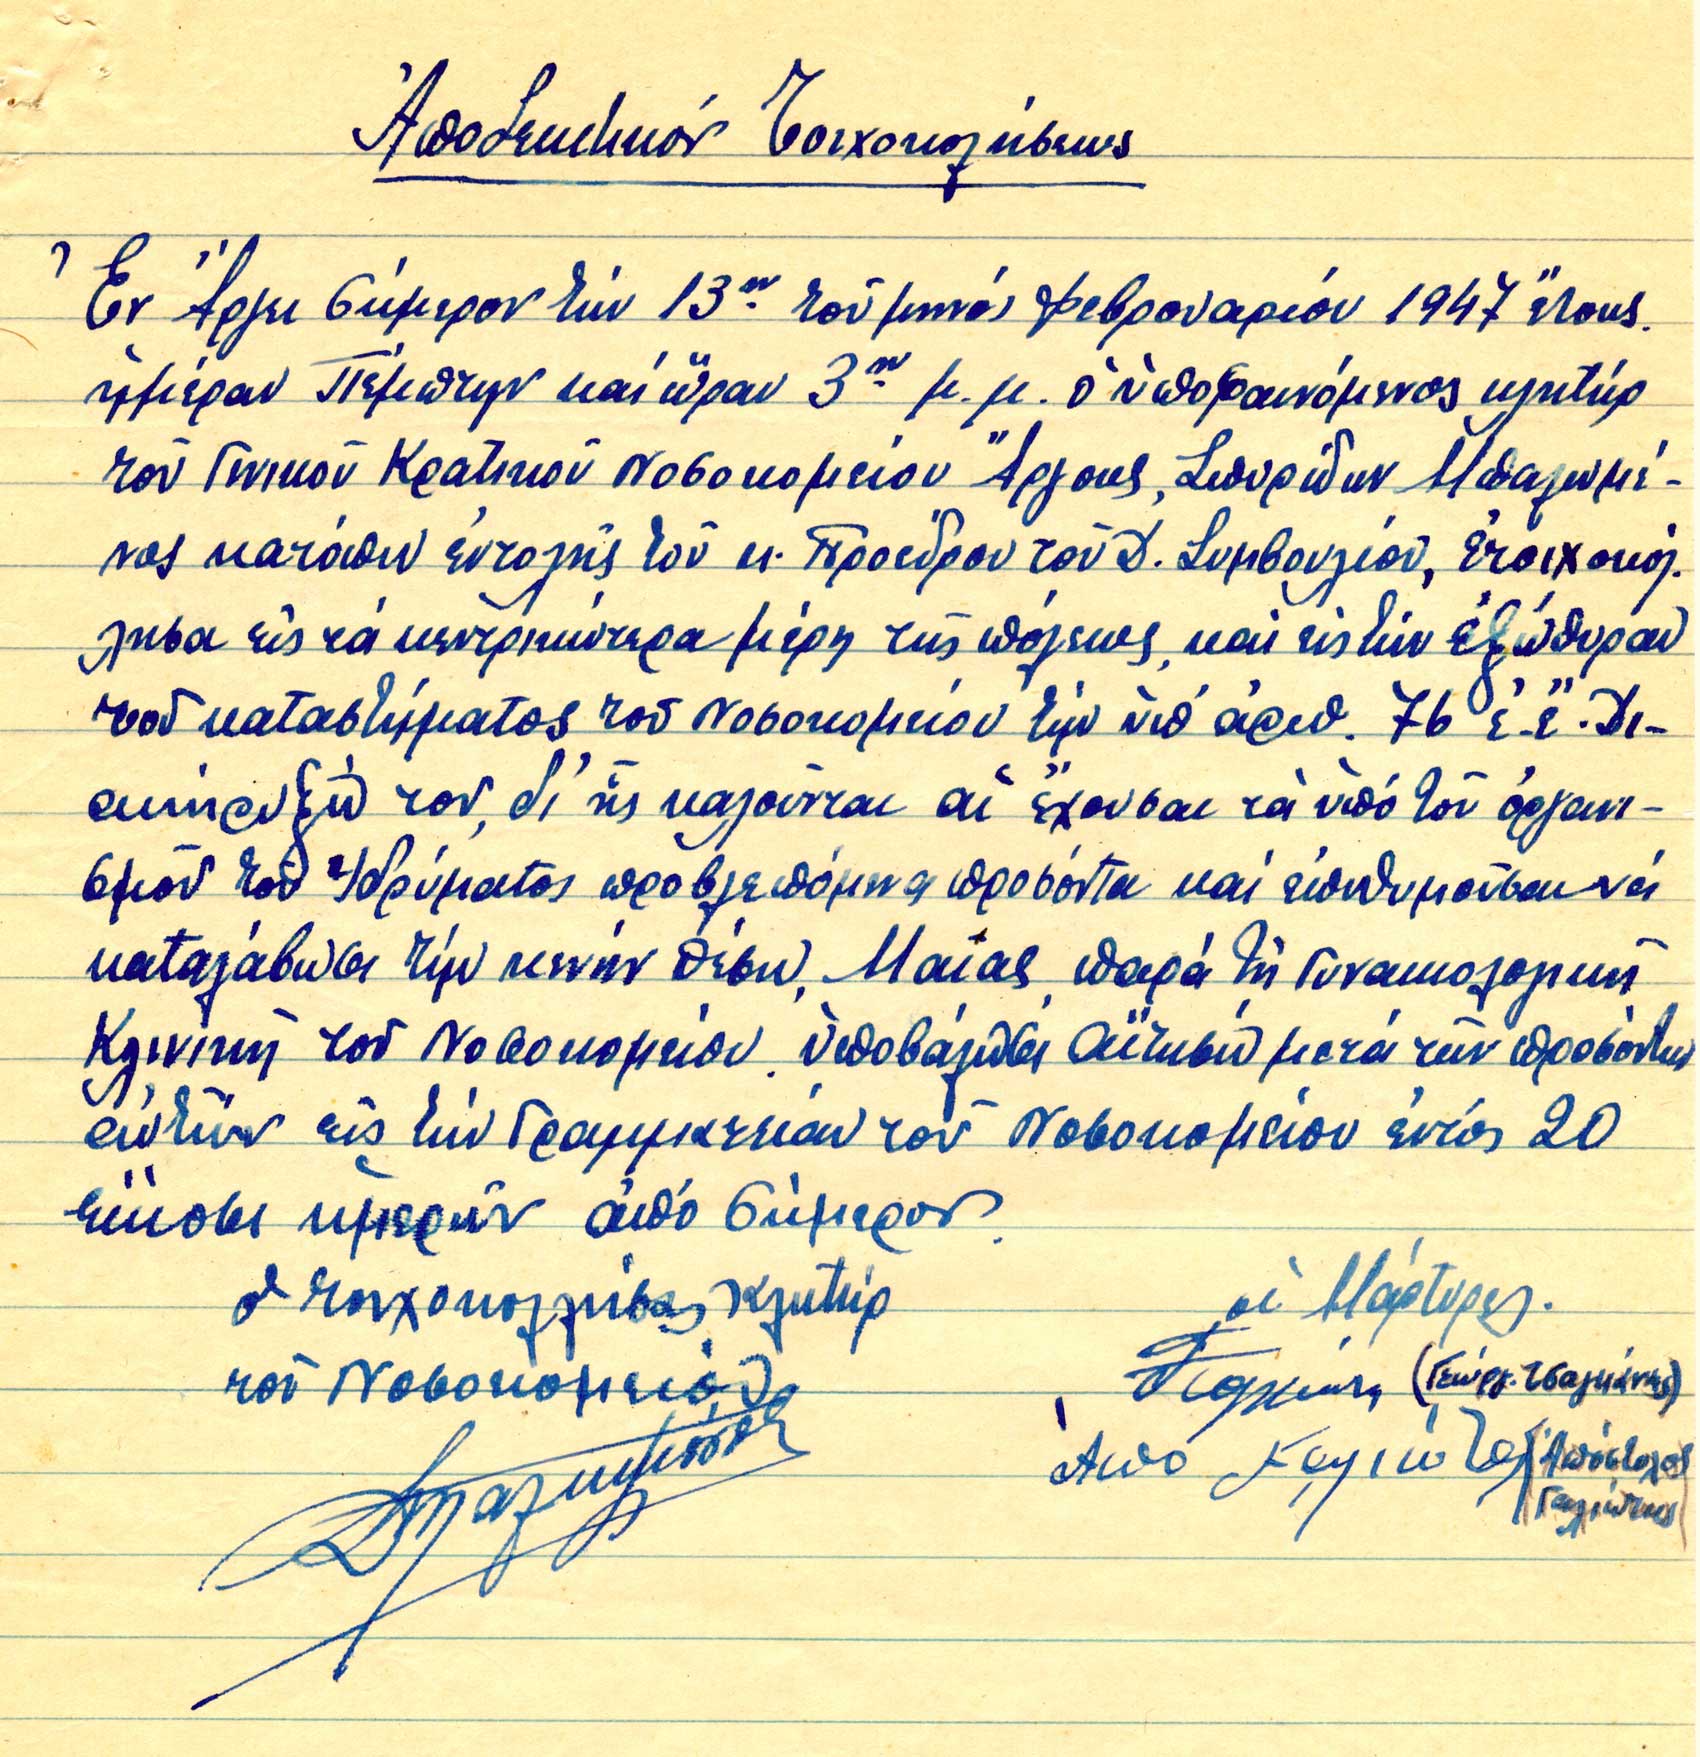 Ἀποδεικτικόν Τοιχοκολήσεως
Ἐν Ἄργει σήμερον τήν 13ην τοῦ μηνός Φεβρουαρίου 1947 ἔτους.
ἡμέραν Πέμπτην καί ὥραν 3ην μ.μ. ὁ ὑποφαινόμενος κλητήρ
τοῦ Γενικοῦ Κρατικοῦ Νοσοκομείου Ἄργους, Σπυρίδων Μπαλωμέ-
νος κατόπιν ἐντολῆς τοῦ κ. Προέδρου τοῦ Δ. Συμβουλίου, ἐτοιχοκόλ-
λησα εἰς τά κεντρικώτερα μέρη τῆς πόλεως, καί εἰς τήν ἐξώθυραν
τοῦ καταστήματος τοῦ Νοσοκομείου τήν ὑπ' ἀριθ. 76 ἐ.ἔ. Δι-
ακήρυξίν του, δι' ἧς καλοῦνται αἱ ἔχουσαι τά ὑπό τοῦ ὀργανι-
σμοῦ τοῦ Ἱδρύματος προβλεπόμενα προσόντα καί ἐπιθυμοῦσαι νά
καταλάβωσι τήν κενήν θέσιν, Μαίας, παρά τῇ Γυναικολογικῇ
Κλινικῇ τοῦ Νοσοκομείου. ὑποβάλωσι αἴτησιν μετά τῶν προσόντων
αὐτῶν εἰς τήν Γραμματείαν τοῦ Νοσοκομείου ἐντός 20
εἴκοσι ἡμερῶν ἀπό σήμερον.
ὁ τοιχοκολλήσας Κλητήρ
τοῦ Νοσοκομείου
οἱ Μάρτυρες.
(Γεώργ. Τσαλκάνης)
(Ἀπόστολος
Γκαλιώτης)